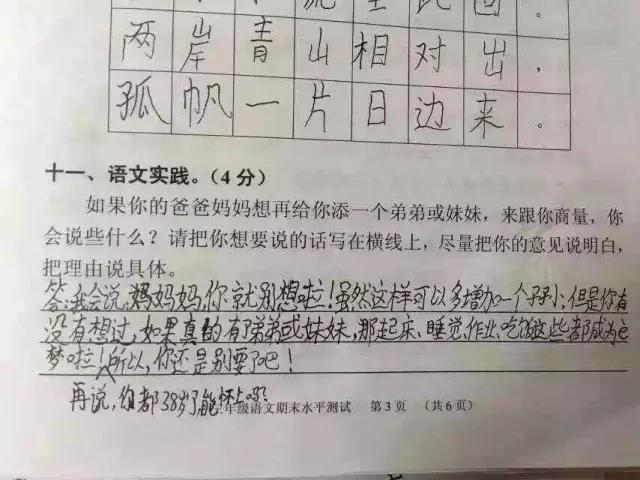 流 至 此 回 。
两 岸 青 山 相 对 出 ，
孤 帆 一 片 日 边 来 。
十一、语文实践。（4分）
如果你的爸爸妈妈想再给你添一个弟弟或妹妹，来跟你商量，你
会说些什么？请把你想要说的话写在横线上，尽量把你的意见说明白，
把理由说具体。
答:我会说,妈妈妈,你就别想啦!虽然这样可以多增加一个孩子;但是你有
没有想过,如果真的有弟弟或妹妹,那起床、睡觉、作业、吃饭这些都成为
梦啦!所以,你还是别要了吧!
再说,你都38岁了能怀上吗?
年级语文期末水平测试 第3页 （共6页）